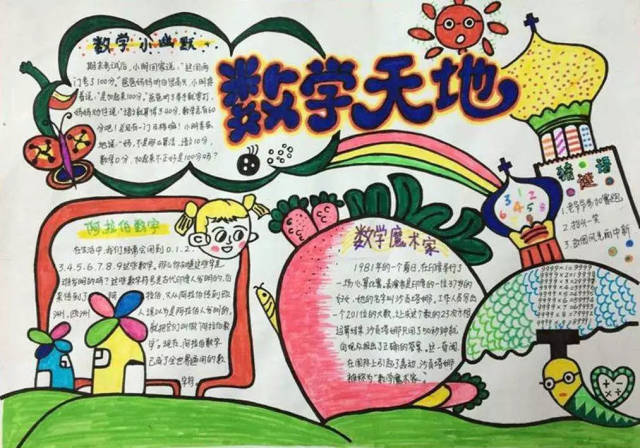 数学天地
数学小幽默
期末考试后，小明回家说，"这回两
门考了100分。"爸爸妈妈听白很高兴，小明弄
着说："是加起来100分。"爸爸听了举手就要打，
妈妈劝住说："语文就算得了40分，数学总有60
分吧！总还有一门及格嘛！小明委委
地说："妈，不是那么算法，语文10分，
数学0分，加起来不正好是100分吗？
阿拉伯数字
在生活中，我们经常会用到0.1.2.
3.4.5.6.7.8.9这些数字。那么你知道这些数字是
谁发明的吗？这些数字符号是古代印度人发明的，后
来传到了阿拉伯，又从阿拉伯传到欧
洲，欧洲人误以为是阿拉伯人发明的，
就把它们叫做"阿拉伯数
字"。现在，阿拉伯数字
已成了全世界通用的数
字符。
数学魔术家
1981年的一个夏日，在印度举行了
一场心算比赛。表演者是印度的一位37岁的
妇女，她的名字叫沙贡塔娜，工作人员写出
一个201位的大数，让求这个数的23次方根
运算结果，沙贡塔娜只用了50秒钟就
向观众报出了正确的答案。这一奇闻，
在国际上引起了轰动，沙贡塔娜
被称为"数学魔术家"。
猜谜语
1.老爷爷参加赛跑
2.抬头一笑
3.台风风暴雨中断
9999×1=9999